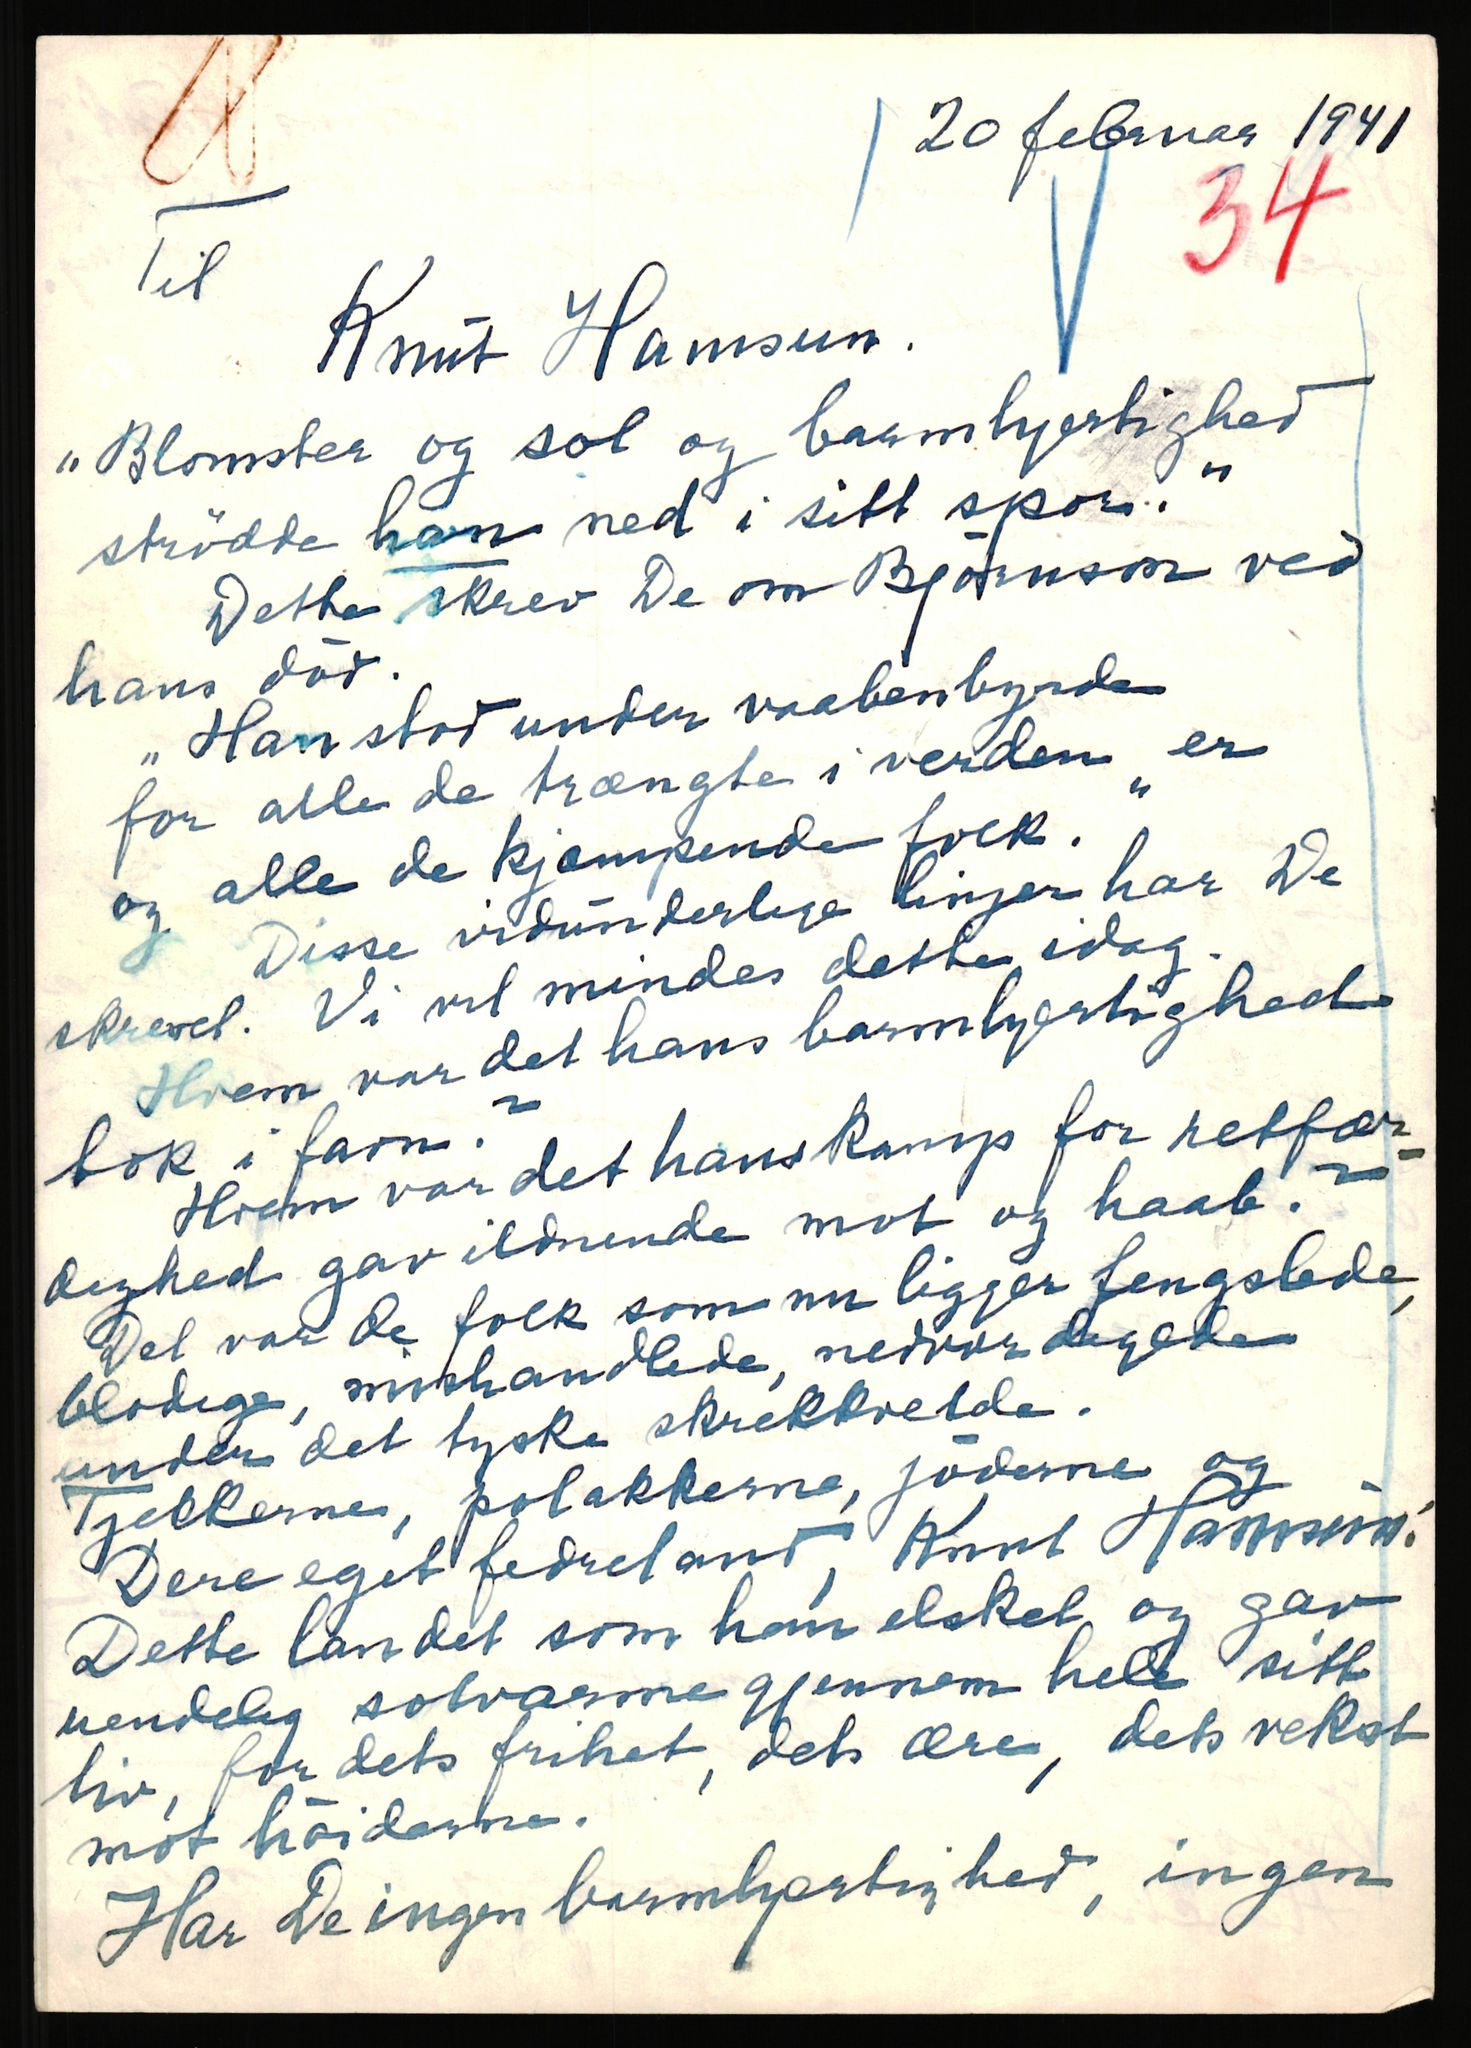 20 februar 1941
34
Til
Knut Hamsun.
"Blomster og sol og barmhjertighed
strödde han ned i sitt spor."
Dette skrev De om Björnson ved
hans död.
"Han stod under vaabenbyrde
for alle de trængte i verden" er
og alle de kjæmpende folk."
Disse vidunderlige linjer har De
skrevet. Vi vil mindes dette idag.
Hvem var det hans barmhjertighed
tok i favn?
Hvem var det hans kamp for retfær-
dighed gav ildnende mot og haab?
Det var de folk som nu ligger fengslede,
blodige, mishandlede, nedværdigede
under det tyske skrekkvelde.
Tjekkerne, polakkerne, jöderne og
Dere eget fedreland, Knut Hamsun!
Dette landet som han elsket og gav
uendelig solvarme gjennem hele sitt
liv, for dets frihet, dets ære, dets vekst
mot höiderne.
Har De ingen barmhjertighed, ingen